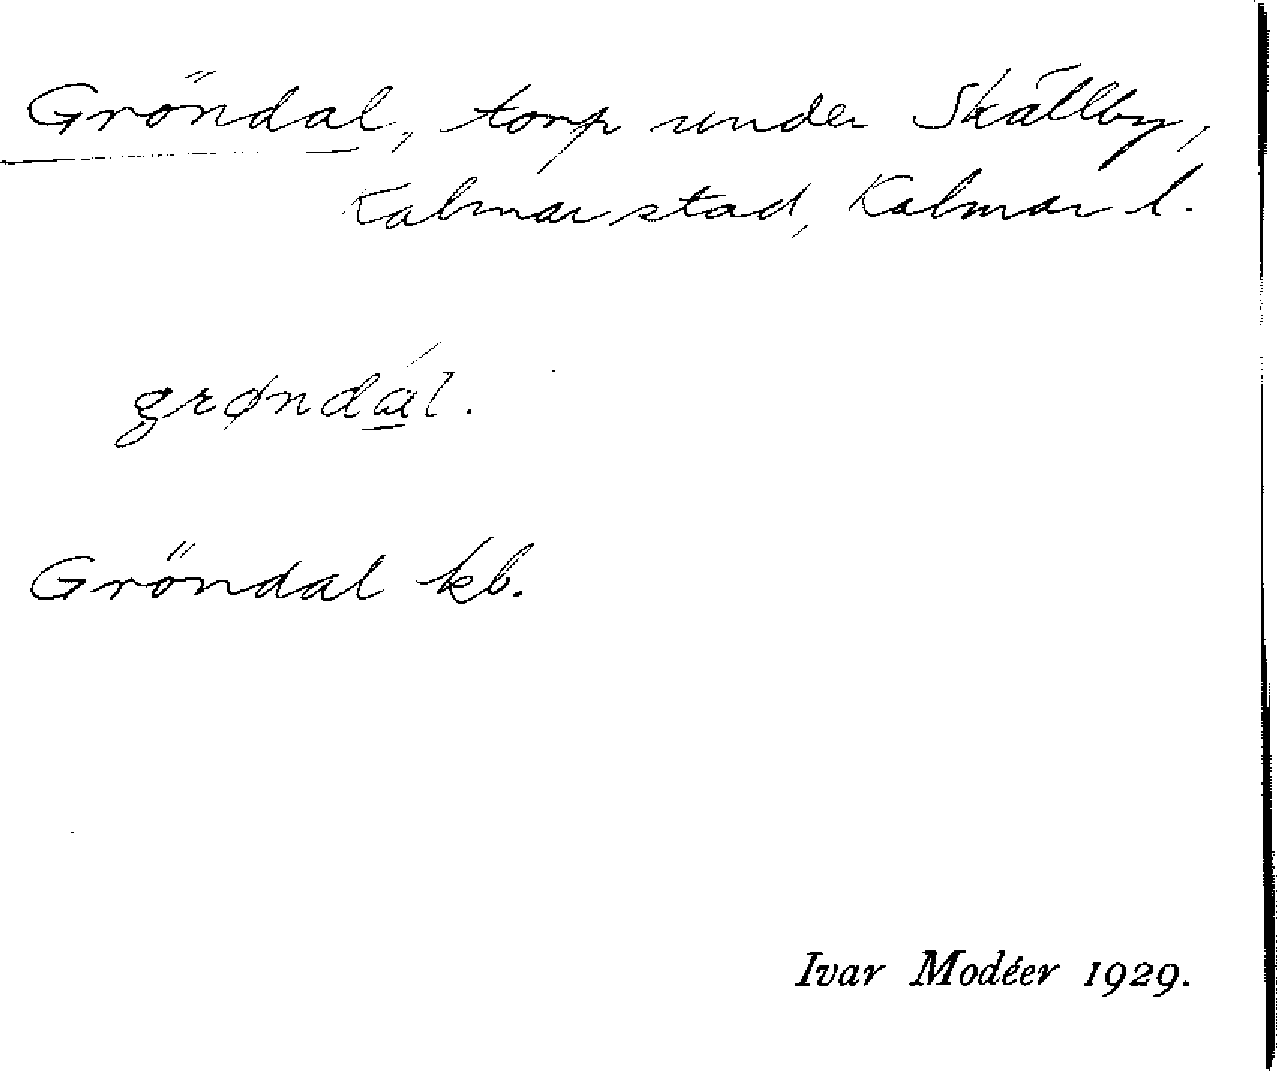 Gröndal, torp under Skälby,
Kalmar stad, Kalmar l.
grøndál.
Gröndal kb.
Ivar Modéer 1929.